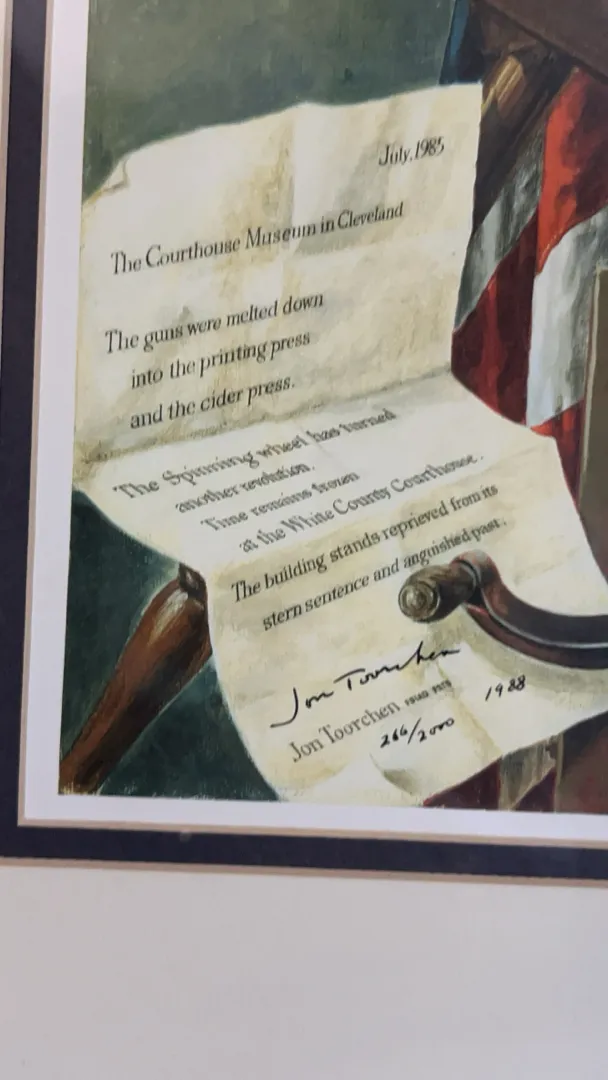 July, 1985
The Courthouse Museum in Cleveland
The guns were melted down
into the printing press
and the cider press.
The Spinning wheel has turned
another revolution.
Time remains frozen
at the White County Courthouse.
The building stands reprieved from its
stern sentence and anguished past.
Jon Toorchen
Jon Toorchen
266/2000 1988